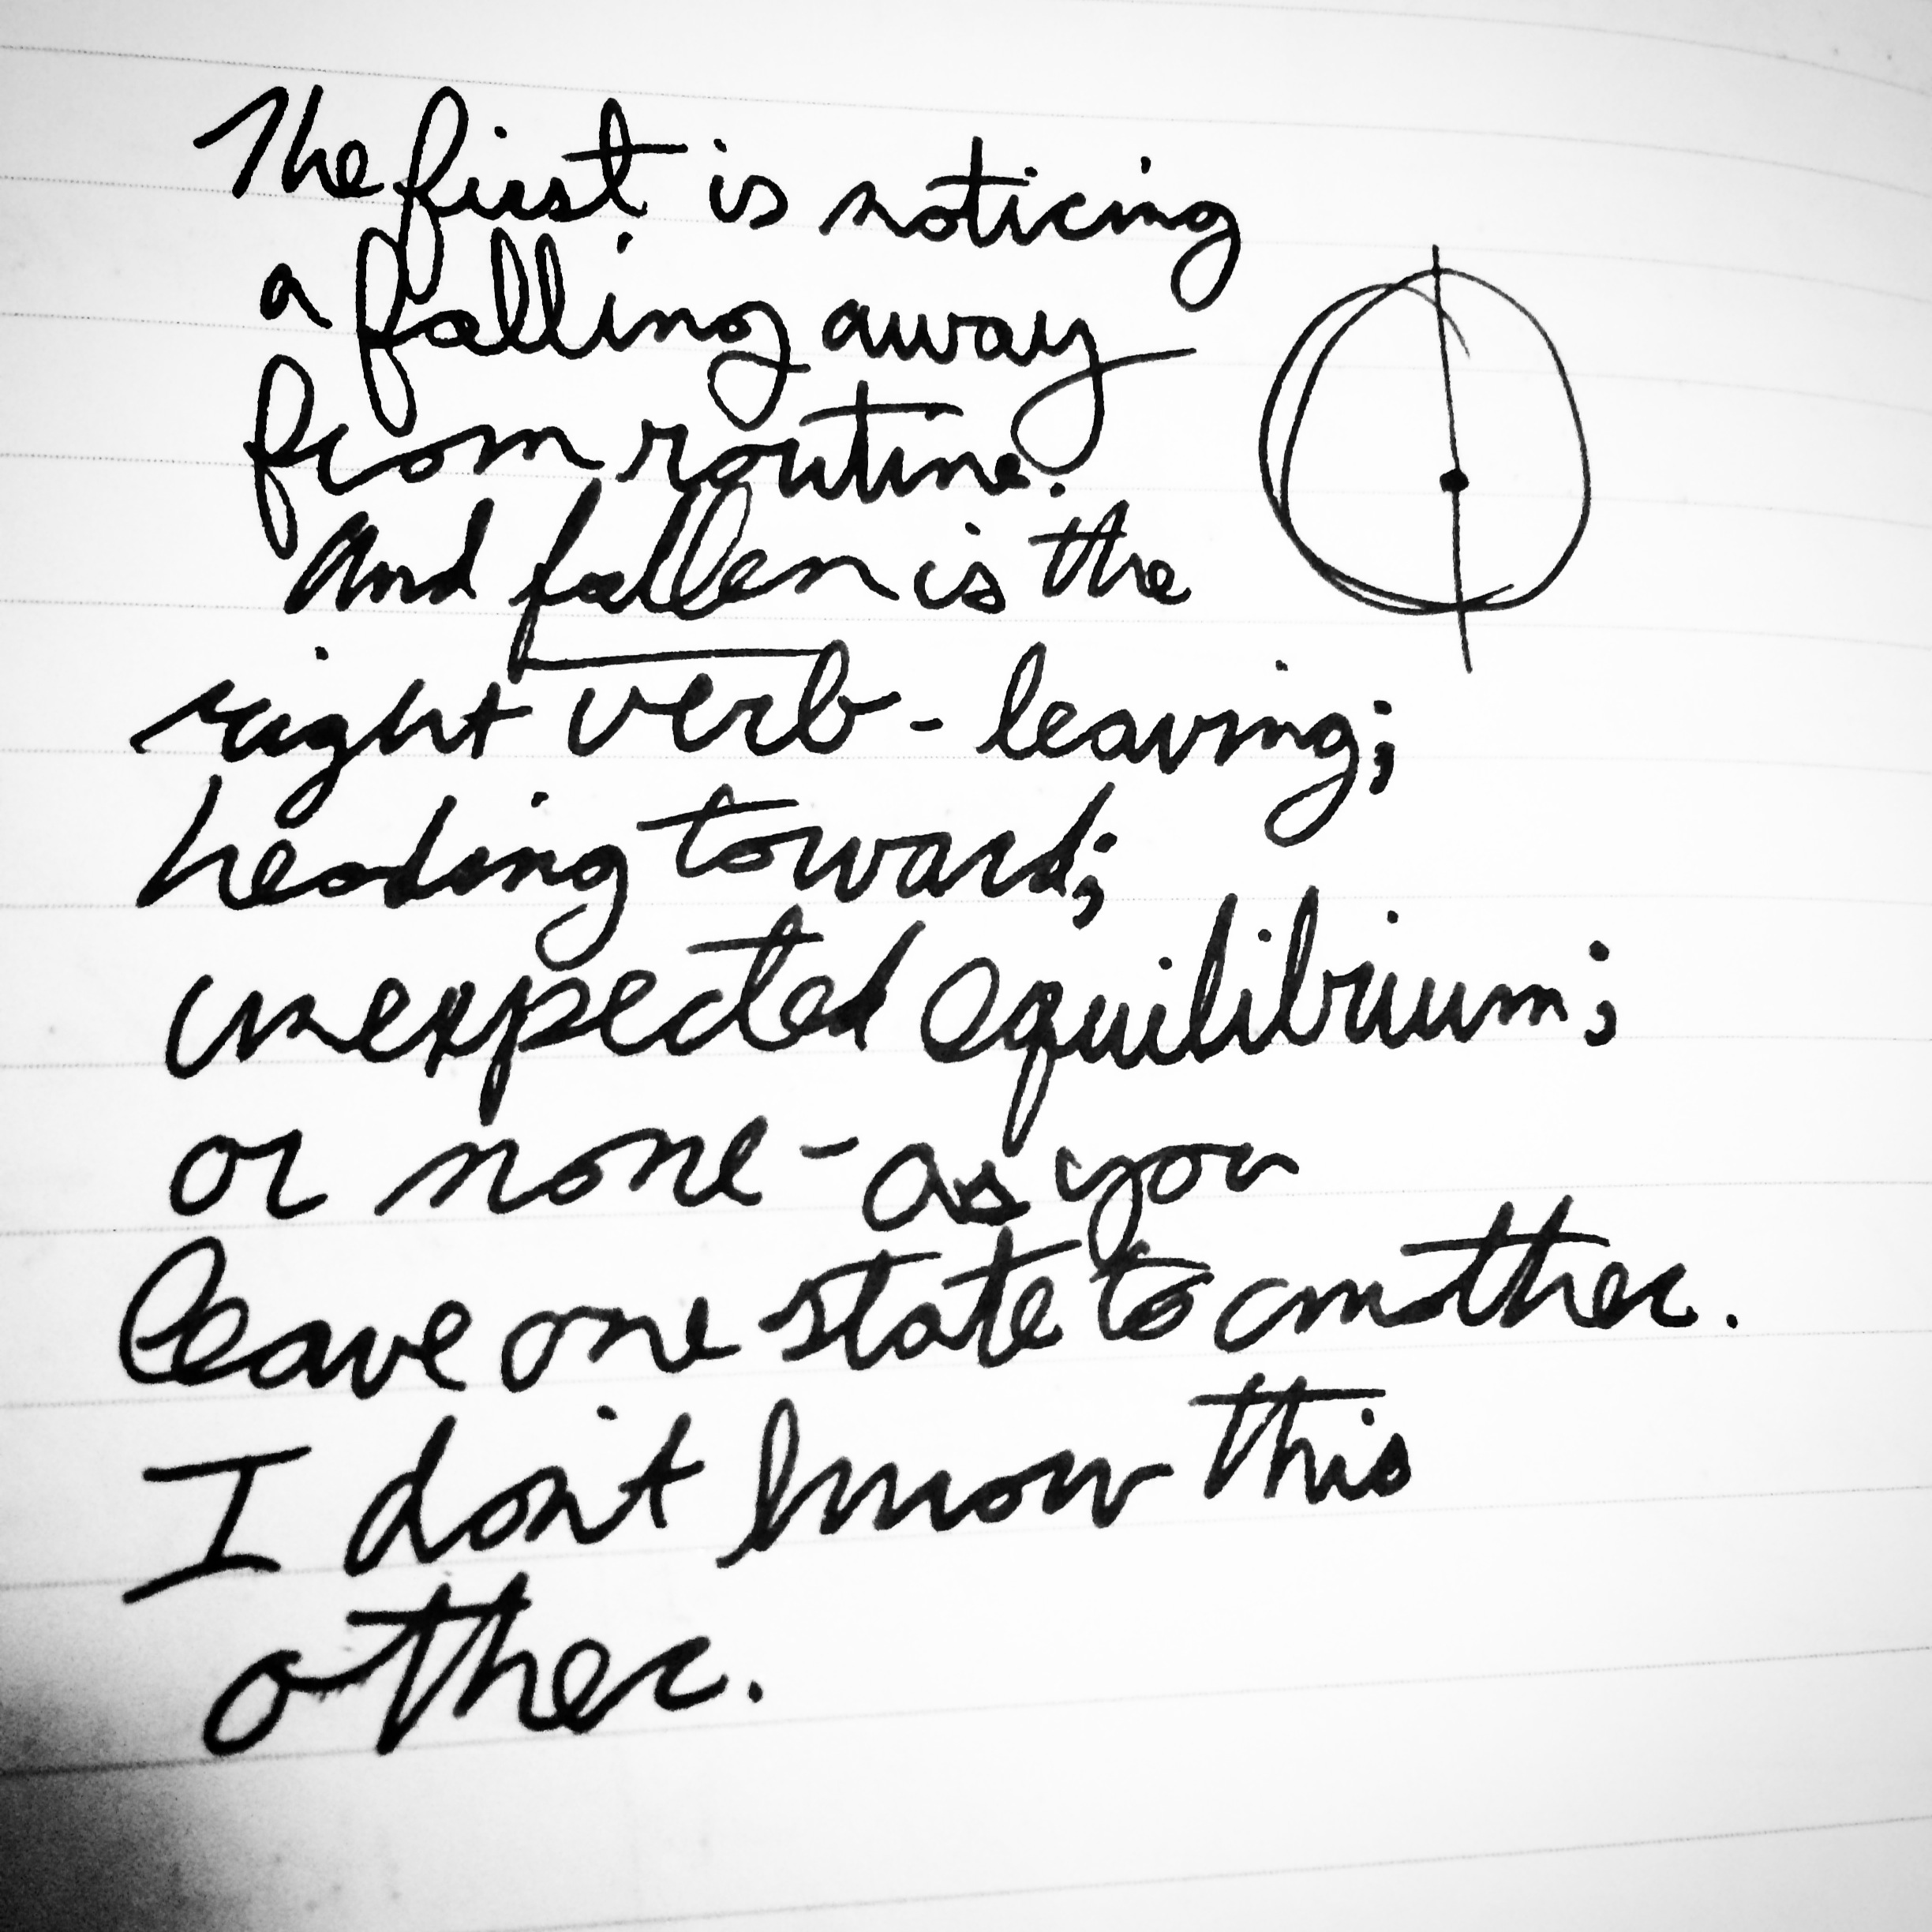 The first is noticing
a falling away
from routine.
And fallen is the
right verb - leaving;
heading toward;
unexpected equilibrium;
or none - as you
leave one state to another.
I don't know this
other.